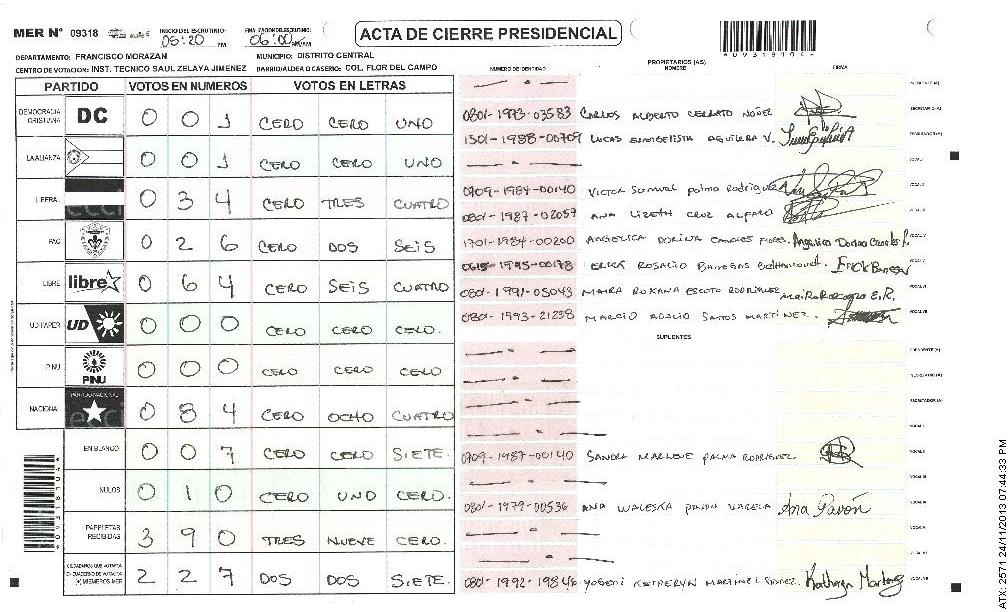 MER N° 09318 INICIO DEL ESCRUTINIO: 05:20 PM 06:00 PM/AM ACTA DE CIERRE PRESIDENCIAL
DEPARTAMENTO: FRANCISCO MORAZAN MUNICIPIO: DISTRITO CENTRAL
CENTRO DE VOTACION: INST. TECNICO SAUL ZELAYA JIMENEZ BARRIO/ALDEA O CASERIO: COL. FLOR DEL CAMPO
NUMERO DE IDENTIDAD PROPIETARIOS (AS) NOMBRE FIRMA
PARTIDO VOTOS EN NUMEROS VOTOS EN LETRAS
DEMOCRACIA CRISTIANA DC 0 0 1 CERO CERO UNO
LA ALIANZA 0 0 1 CERO CERO UNO
LIBERAL 0 3 4 CERO TRES CUATRO
PAC 0 2 6 CERO DOS SEIS
LIBRE libre 0 6 4 CERO SEIS CUATRO
UD-FAPER UD 0 0 0 CERO CERO CERO.
PINU PINU 0 0 0 CERO CERO CERO
NACIONAL PARTIDO NACIONAL 0 8 4 CERO OCHO CUATRO
EN BLANCO 0 0 7 CERO CERO SIETE.
NULOS 0 1 0 CERO UNO CERO.
PAPELETAS RECIBIDAS 3 9 0 TRES NUEVE CERO.
CIUDADANOS QUE VOTARON EN CUADERNO DE VOTACION (+) MIEMBROS MER 2 2 7 DOS DOS SIETE.
PRESIDENTE (A)
0801-1973-03583 CARLOS ALBERTO CERRATO NÚÑEZ SECRETARIO (A)
1501-1988-00709 LUCAS EVANGELISTA AGUILERA V. ESCRUTADOR (A)
VOCAL I
0709-1984-00140 VICTOR SAMUEL PALMA RODRIGUEZ VOCAL II
0801-1987-02057 ANA LIZETH CRUZ ALFARO VOCAL III
1701-1984-00200 ANGELICA DORINA CANALES FLORES. Angelica Dorina Canales F. VOCAL IV
0615-1995-00178 ERICK ROSALIO BANEGAS VOCAL V
0801-1991-05043 MAIRA ROXANA ESCOTO RODRIGUEZ VOCAL VI
0801-1993-21238 MARCIO ADALID SANTOS MARTINEZ. VOCAL VII
SUPLENTES
PRESIDENTE (A)
SECRETARIO (A)
ESCRUTADOR (A)
VOCAL I
0709-1987-00140 SANDRA MARLENE PALMA RODRIGUEZ. VOCAL II
VOCAL III
0801-1979-00536 ANA WALESKA PAVON VARELA Ana Pavón VOCAL IV
VOCAL V
VOCAL VI
0801-1992-19846 YOSENI KATHERYN MARTINEZ Katheryn Martinez VOCAL VII
ATX-2571 24/11/2013 07:44:33 PM